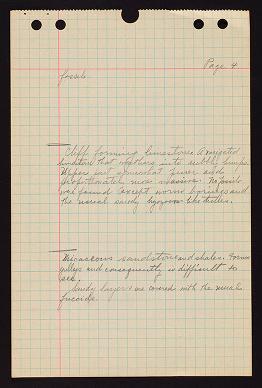 Page 4
fossils.
Cliff forming limestone. Variegated
limestone that weathers into nubbly lumps.
Upper part somewhat finer and
proportionately more massive. No fossils
was found except worm borings and
the usual sandy like
Micaceous sandstone and shales. Forms
valleys and consequently is difficult to
see.
Sandy layers are covered with the usual
fucoids.